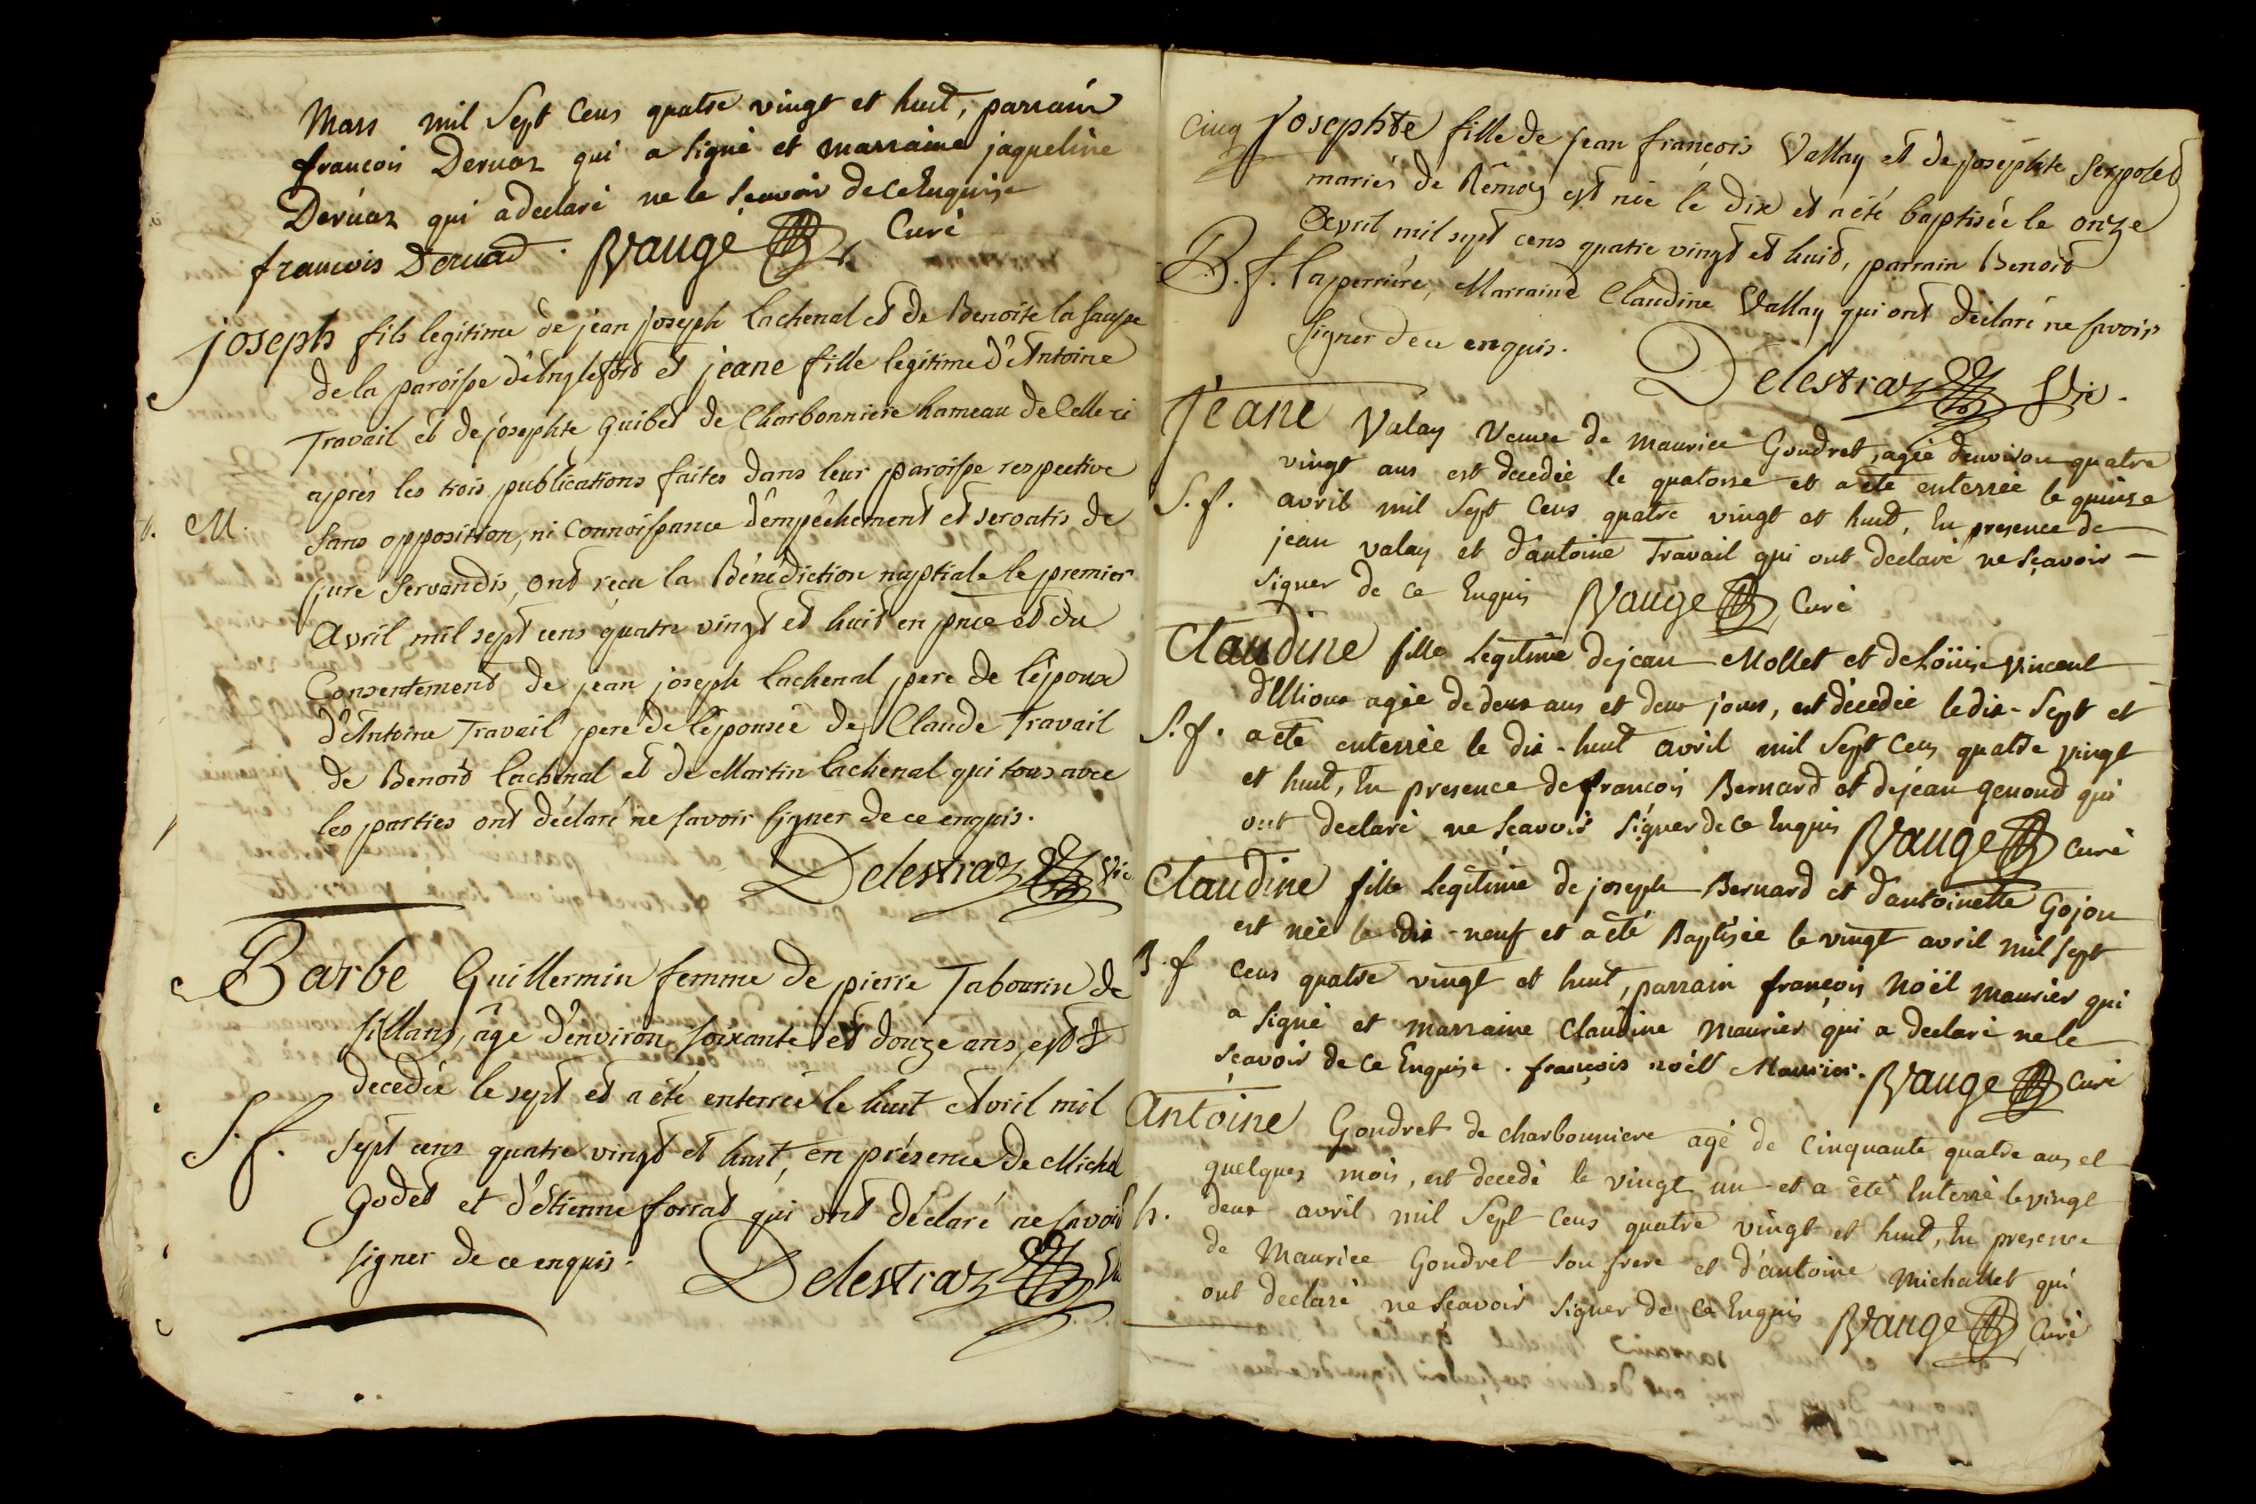 Mars mil Sept Cens quatre vingt et huit, parrain
françois Deruaz qui a signé et marraine jaqueline
Deruaz qui a declaré ne le sçavoir de ce Enquise
françois Deruad. BVauge Curé
joseph fils legitime de jean joseph Lachenal et de Benoite la sausse
de la paroisse d'Anglefort et jeane fille legitime d'Antoine
Travail et de josephte Guibet de Charbonniere hameau de Celle ci
après les trois publications faites dans leur paroisse respective
M. sans opposition, ni connoissance d'empêchement et servatis de
jure servandis, ont reçu la Bénédiction nuptiale le premier
Avril mil sept cens quatre vingt et huit en pnce et du
Consentement de jean joseph Lachenal pere de l'époux
d'Antoine Travail pere de l'epousée de Claude Travail
de Benoid Lachenal et de Martin Lachenal qui tous avec
les parties ont déclaré ne savoir signer de ce enquis.
Delestraz Vic
Barbe Guillermin femme de pierre Tabourin de
sillans, âge d'environ soixante et douze ans, est
decedée le sept et a été enterrée le huit Avril mil
S. f. sept cens quatre vingt et huit, en présence de Michel
Godet et d'étienne forrat qui ont déclaré ne savoir
signer de ce enquis.
Delestraz Vic
cinq josephte fille de jean françois Vallay et de josephte Serpolet
mariés de Rémoz est née le dix et a été baptisée le onze
Avril mil sept cens quatre vingt et huit, parrain Benoid
B. f. Laperriére, Marraine Claudine Vallay qui ont déclaré ne savoir
signer de ce enquis.
Delestraz Vic.
jeane Valay Veuve de Maurice Goudret, agée d'environ quatre
vingt ans est decedée le quatorse et a eté enterrée le quinse
S. f. avril mil Sept Cens quatre vingt et huit, En presence de
jean valay et d'antoine Travail qui ont declaré ne sçavoir
signer de ce Enquis BVauge Curé
Claudine fille Legitime de jean Mollet et de Loüise Vincent
agée de deux ans et deux jours, est décédée le dix-Sept et
S. f. a eté enterrée le dix-huit avril mil Sept Cens quatre vingt
et huit, En presence de françois Bernard et de jean genoud qui
ont declaré ne sçavoir signer de ce Enquis BVauge Curé
Claudine fille Legitime de joseph Bernard et d'antoinette Gojon
est née le dix-neuf et a eté Baptisée le vingt avril mil sept
B. f Cens quatre vingt et huit, parrain françois Noël Maurier qui
a signé et marraine Claudine Maurier qui a declaré ne le
sçavoir de ce Enquise. françois noël Maurier. BVauge Curé
Antoine Goudret de charbonniere agé de cinquante quatre ans et
quelques mois, est decedé le vingt un et a eté Enterré le vingt
S. h. deux avril mil Sept Cens quatre vingt et huit, En presence
de Maurice Goudret son frere et d'antoine Michallet qui
ont declaré ne sçavoir signer de ce Enquis BVauge Curé